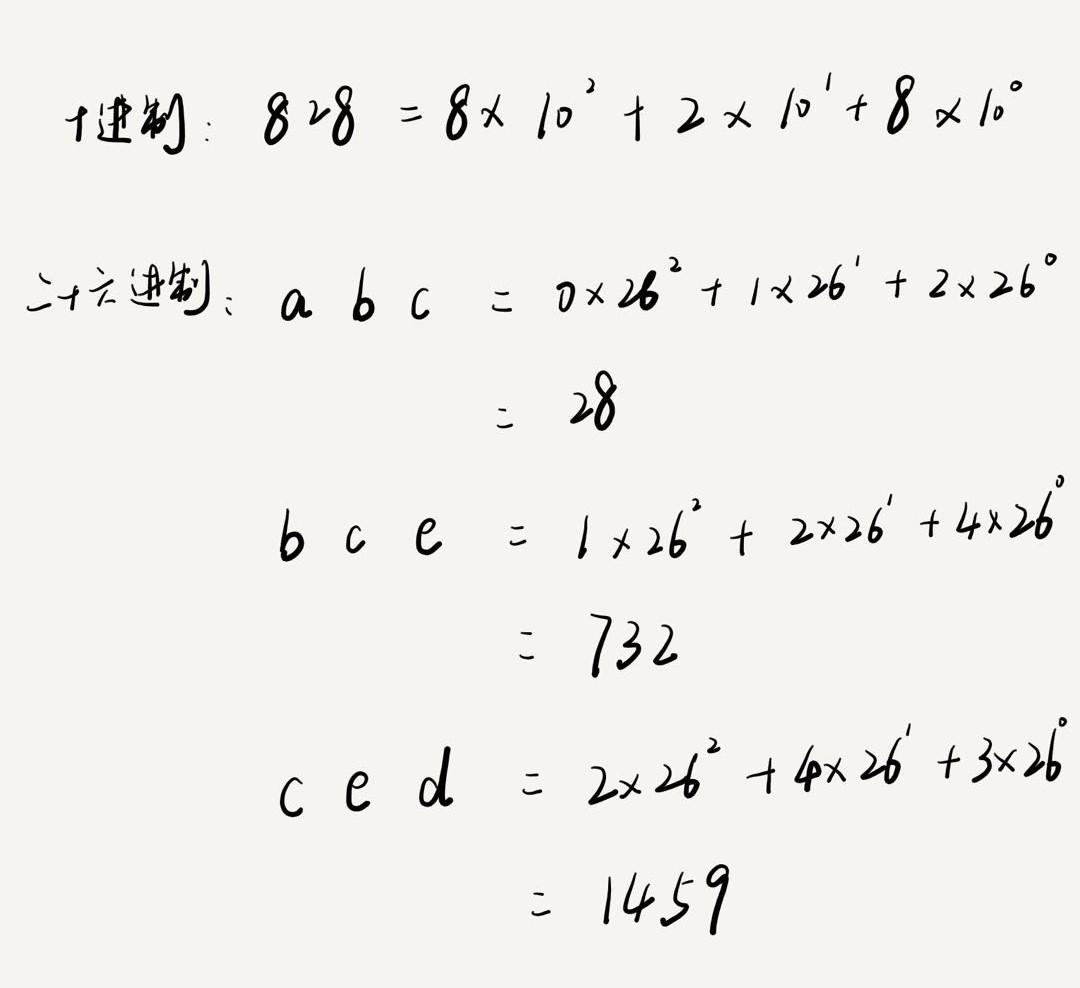 十进制: 828 = 8 × 10² + 2 × 10¹ + 8 × 10⁰
二十六进制: a b c = 0 × 26² + 1 × 26¹ + 2 × 26⁰
= 28
b c e = 1 × 26² + 2 × 26¹ + 4 × 26⁰
= 732
c e d = 2 × 26² + 4 × 26¹ + 3 × 26⁰
= 1459